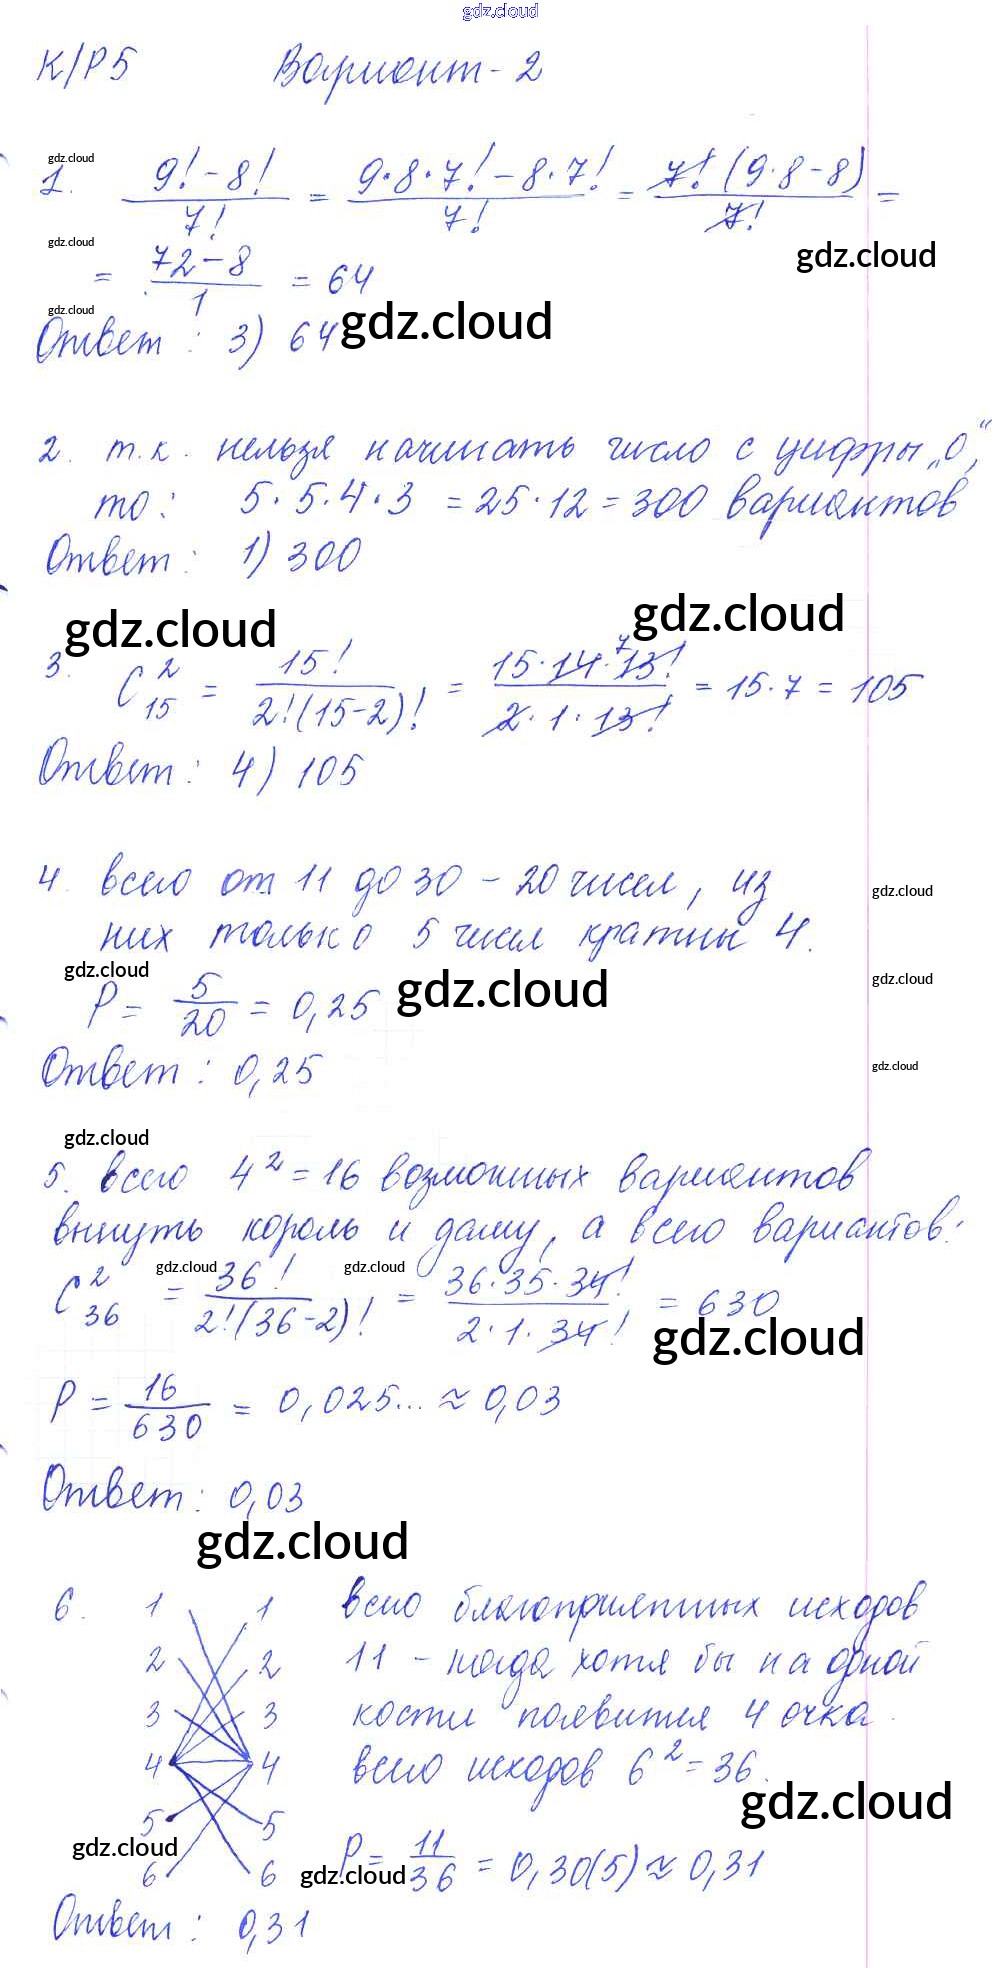 gdz.cloud
К/Р 5 Вариант - 2
gdz.cloud
1. (9! - 8!)/7! = (9·8·7! - 8·7!)/7! = 7!(9·8-8)/7! =
gdz.cloud gdz.cloud
= (72-8)/1 = 64
gdz.cloud
Ответ: 3) 64 gdz.cloud
2. т.к. нельзя начинать число с цифры „0“,
то: 5·5·4·3 = 25·12 = 300 вариантов
Ответ: 1) 300
gdz.cloud gdz.cloud
3. C²₁₅ = 15!/(2!(15-2)!) = (15·14·13!)/(2·1·13!) = 15·7 = 105
7
Ответ: 4) 105
4. всего от 11 до 30 - 20 чисел, из
gdz.cloud
них только 5 чисел кратны 4.
gdz.cloud gdz.cloud gdz.cloud
P = 5/20 = 0,25
Ответ: 0,25
gdz.cloud
gdz.cloud
5. всего 4² = 16 возможных вариантов
вынуть король и даму, а всего вариантов:
gdz.cloud gdz.cloud
C²₃₆ = 36!/(2!(36-2)!) = (36·35·34!)/(2·1·34!) = 630
gdz.cloud
P = 16/630 = 0,025... ≈ 0,03
Ответ: 0,03
gdz.cloud
6. 1 1 всего благоприятных исходов
2 2 11 - когда хотя бы на одной
3 3 кости появится 4 очка.
4 4 всего исходов 6² = 36.
gdz.cloud
5 5
gdz.cloud gdz.cloud
6 6 P = 11/36 = 0,30(5) ≈ 0,31
Ответ: 0,31